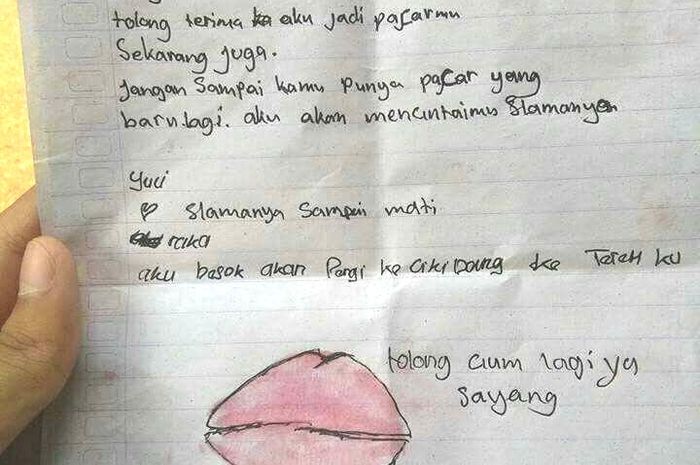 tolong terima aku jadi pacarmu
Sekarang juga.
jangan Sampai kamu Punya pacar yang
baru lagi. aku akan mencintaimu Slamanya
Yuci
♡ Slamanya Sampai mati
raka
aku besok akan Pergi ke cikidang ke Teteh ku
tolong cium lagi ya
sayang